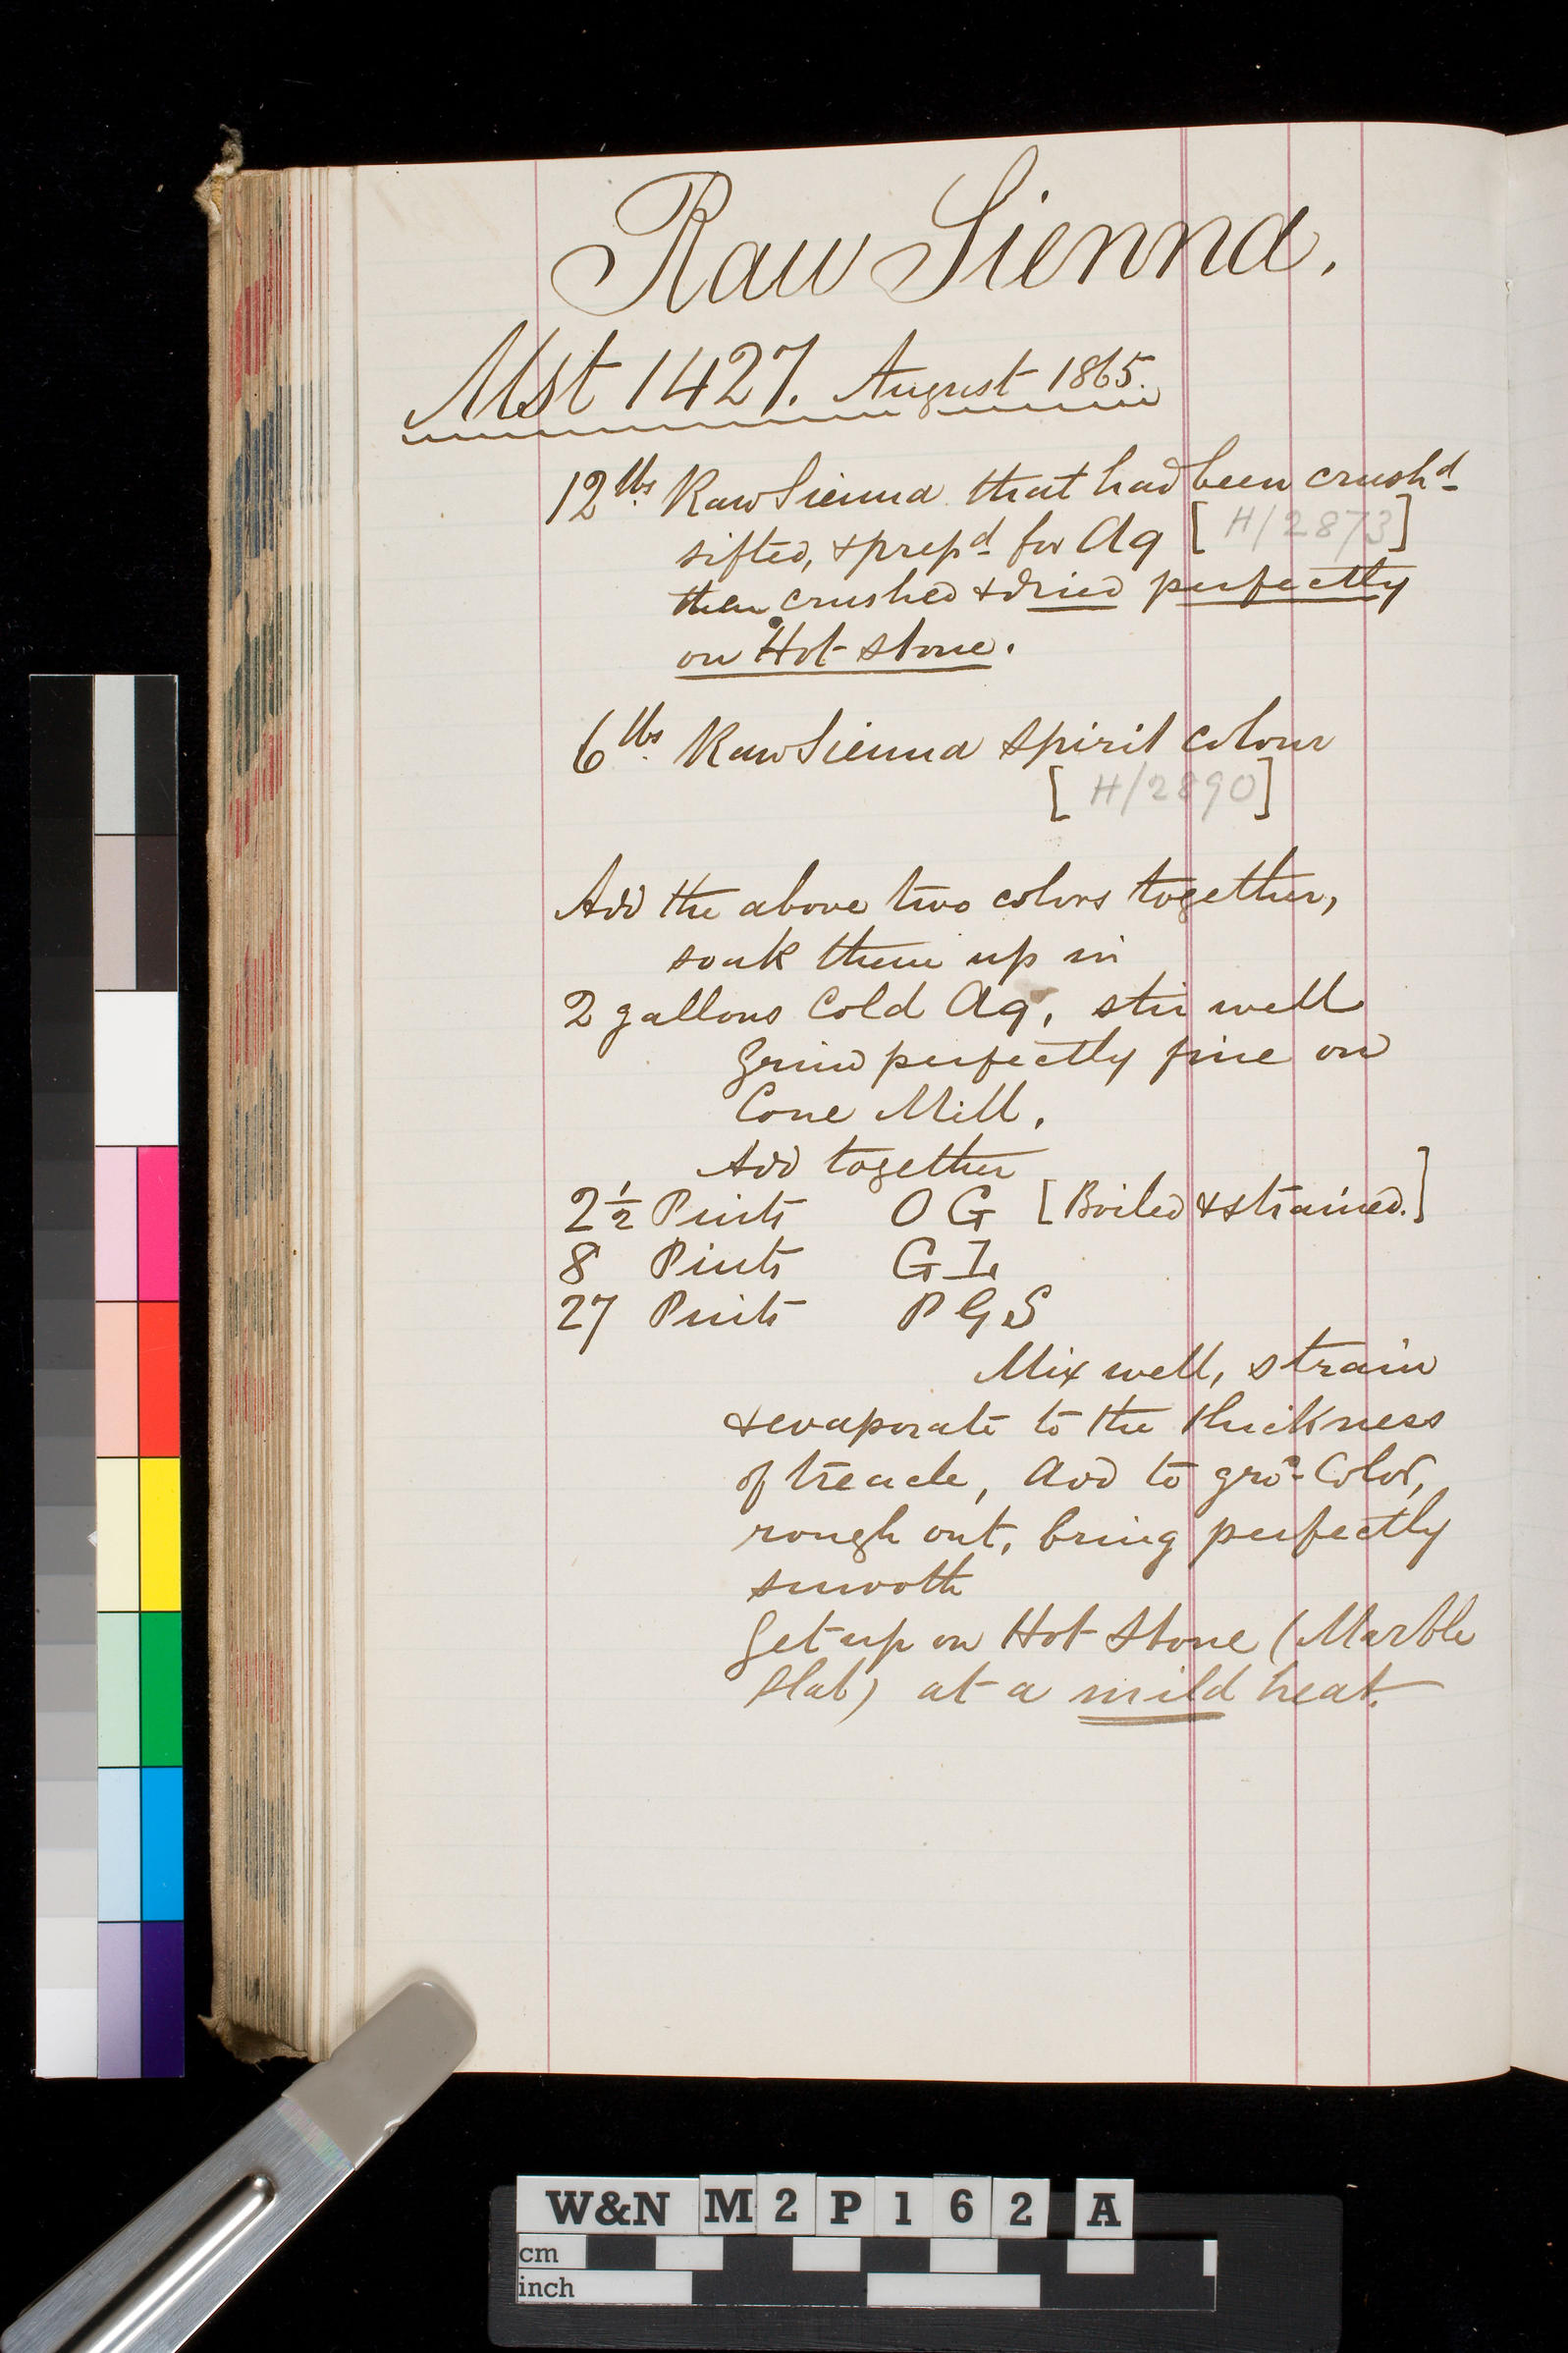 Raw Sienna.
Mst 1427. August 1865.
12 lbs Raw Sienna that had been crush^d
sifted, & prep^d for Aq [H/2873]
then crushed & dried perfectly
on Hot stone.
6 lbs Raw Sienna spirit colour
[H/2890]
Add the above two colors together,
soak them up in
2 gallons Cold Aq, stir well
Grind perfectly fine on
Cone Mill.
Add together
2½ Pints O G [Boiled & strained.]
8 Pints G I
27 Pints P G S
Mix well, strain
& evaporate to the thickness
of treacle, Add to gro^d Color,
rough out, bring perfectly
smooth
Get up on Hot Stone (Marble
Slab) at a mild heat.
W&N M2P162 A
cm
inch